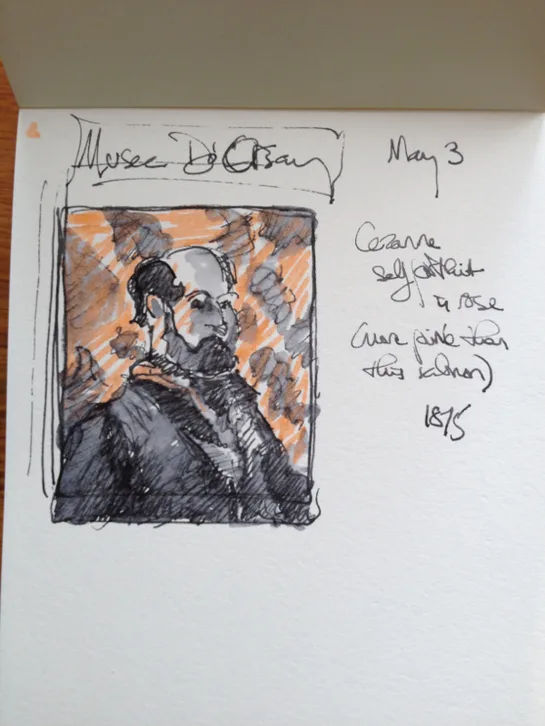 Musee D'Orsay
May 3
Cezanne
self portrait
a rose
(more pink than
this salmon)
1875